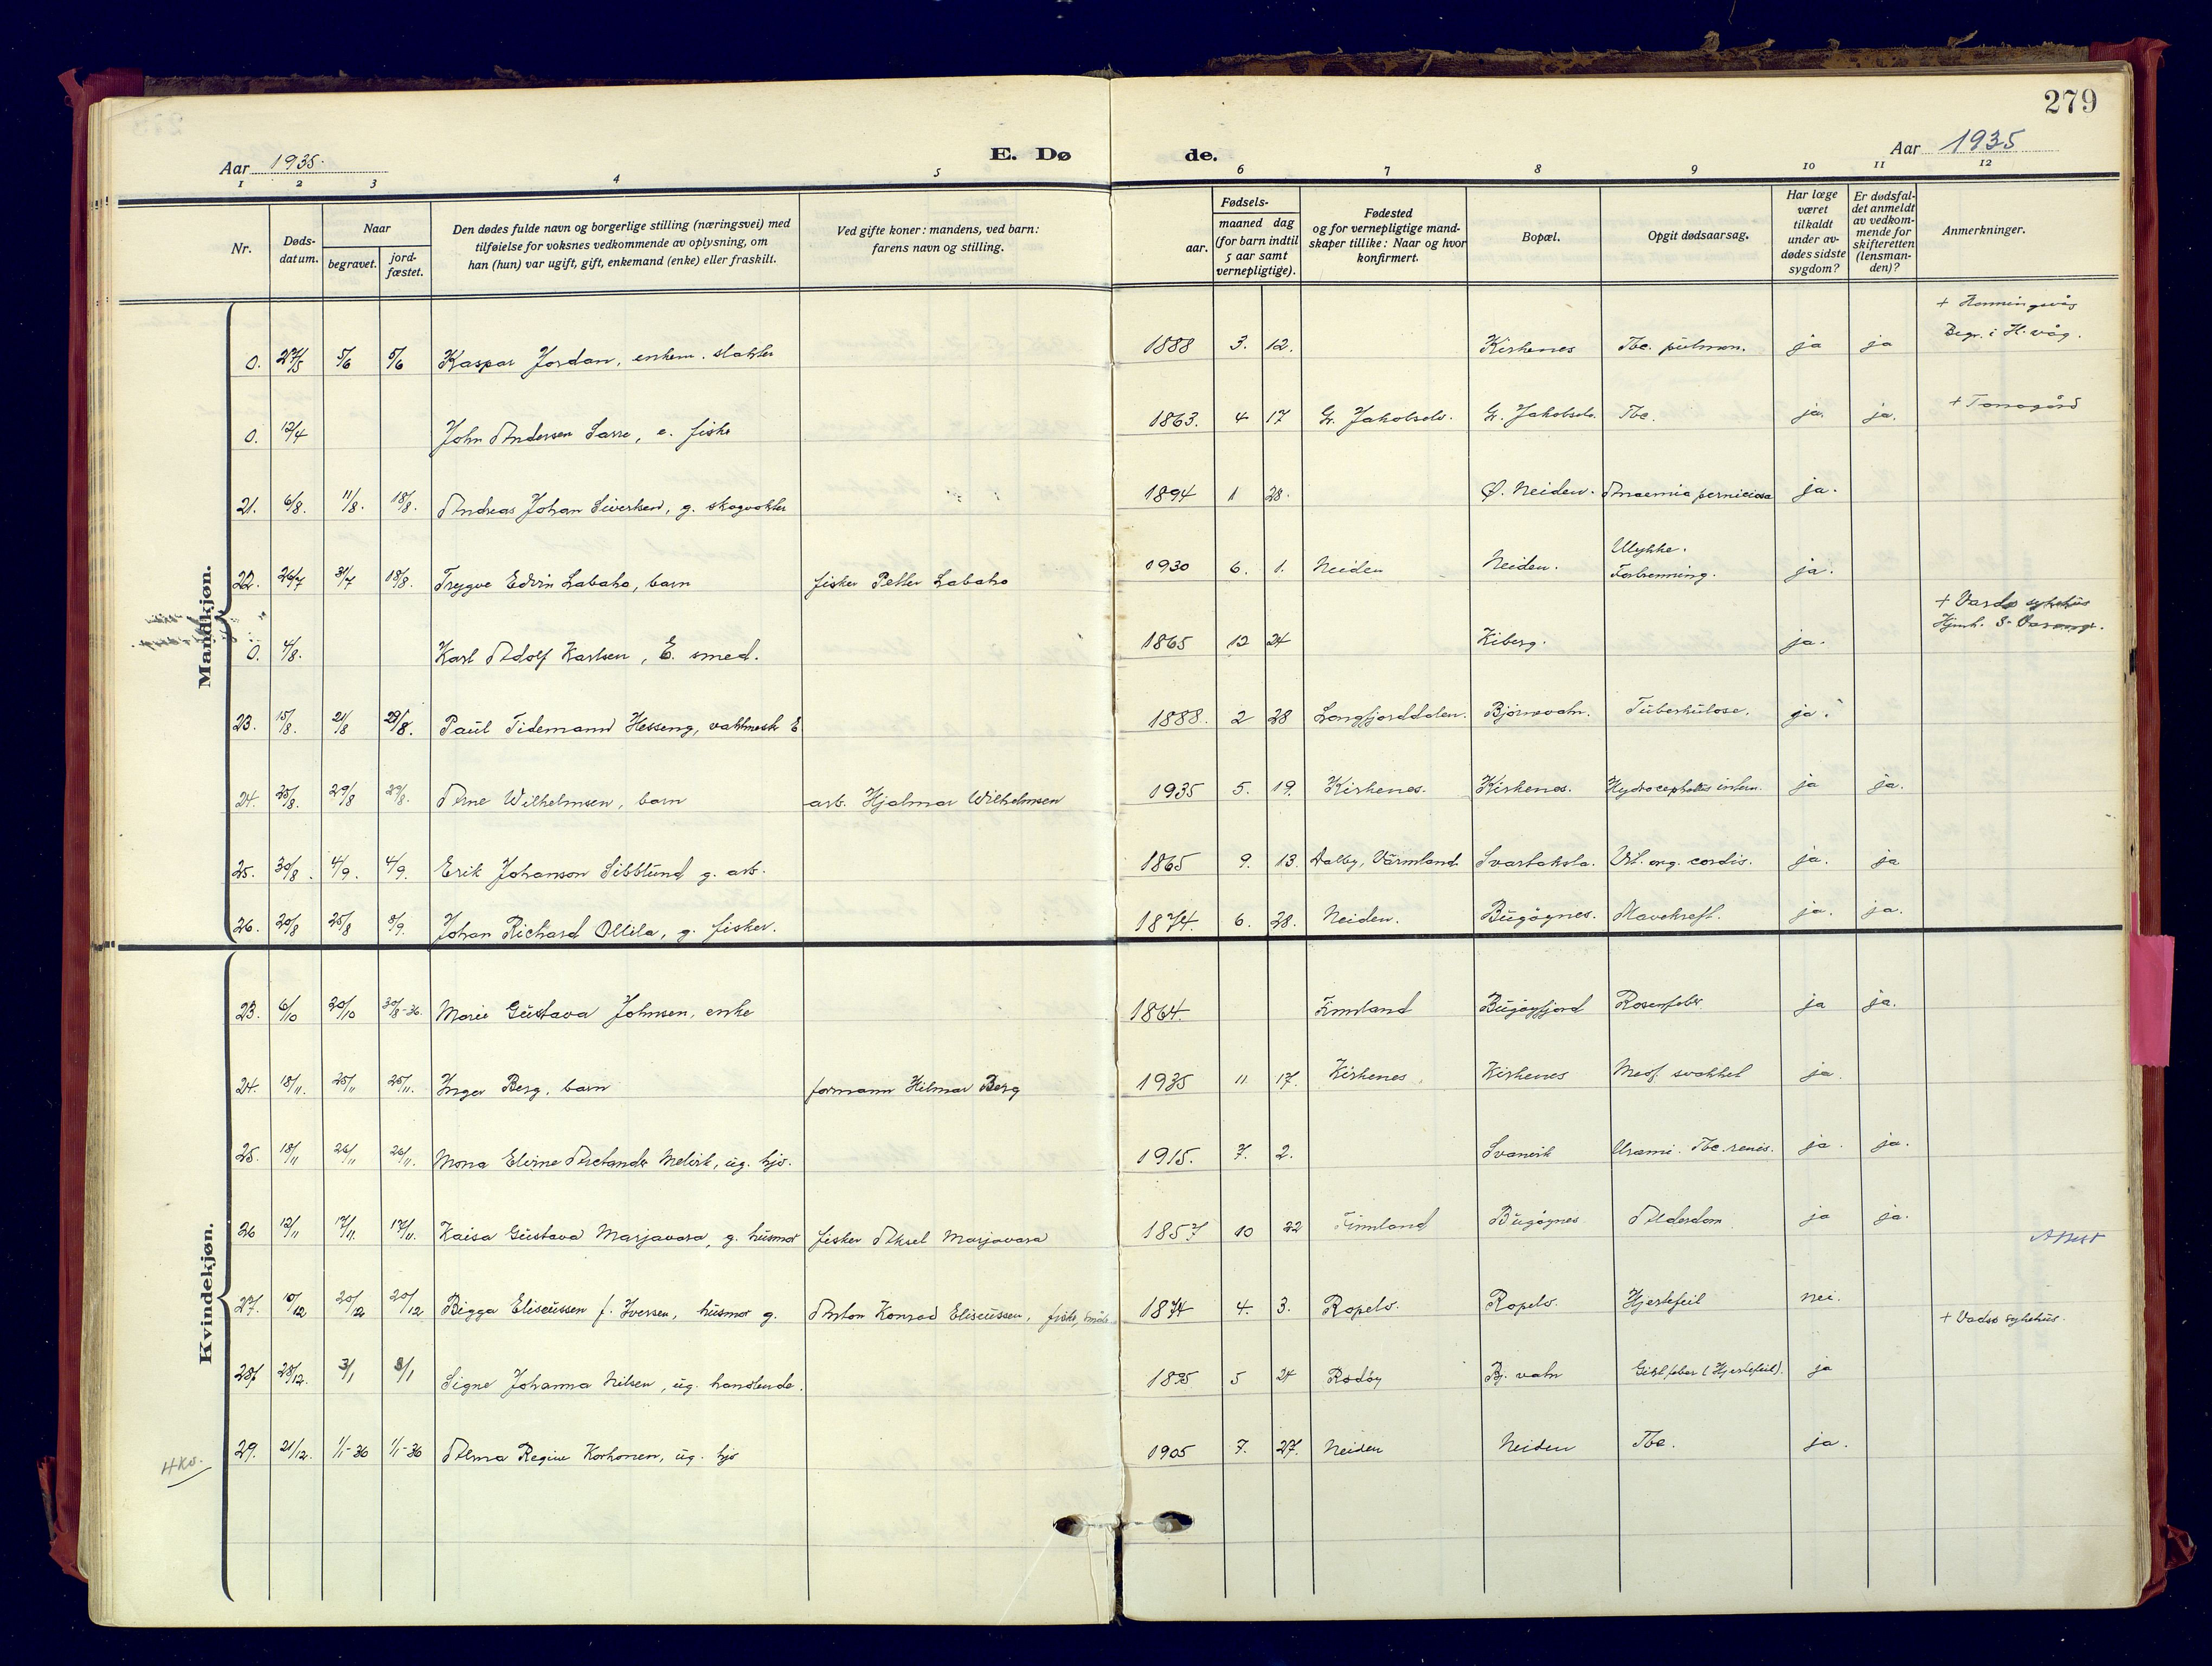 279
Aar 1935.
E. Dø
de.
Aar 1935
1 2 3 4 5 6 7 8 9 10 11 12
Nr.
Døds-
datum.
Naar
begravet.
jord-
fæstet.
Den dødes fulde navn og borgerlige stilling (næringsvei) med
tilføielse for voksnes vedkommende av oplysning, om
han (hun) var ugift, gift, enkemand (enke) eller fraskilt.
Ved gifte koner: mandens, ved barn:
farens navn og stilling.
Fødsels-
aar.
maaned dag
(for barn indtil
5 aar samt
vernepligtige).
Fødested
og for vernepligtige mand-
skaper tillike: Naar og hvor
konfirmert.
Bopæl.
Opgit dødsaarsag.
Har læge
været
tilkaldt
under av-
dødes sidste
sygdom?
Er dødsfal-
det anmeldt
av vedkom-
mende for
skifteretten
(lensman-
den)?
Anmerkninger.
Mandkjøn.
+ Honningsvåg
Begr. i H. våg.
0. 27/5 5/6 5/6 Kaspar Jordan, enkem. slakter 1888 3. 12. Kirkenes Tbc. pulmon. ja ja
0. 12/4 John Andersen Sarre, e. fisker 1863. 4 17 Gr. Jakobselv. Gr. Jakobselv. Tbc. ja. ja.
21. 6/8. 11/8. 18/8. Andreas Johan Sivertsen, g. skogvokter 1894 1 28. Ø. Neiden. Anaemia perniciosa ja.
22. 26/7 31/7 18/8. Trygve Edvin Labaho, barn fisker Petter Labaho 1930 6. 1. Neiden Neiden. Ulykke. Forbrenning. ja.
+ Vardø sykehus
Hjmh. S-Varang.
0. 4/8. Karl Adolf Karlsen, E. smed. 1865 12 24 Kiberg. ja.
23. 15/8. 21/8 29/8. Paul Tidemann Hesseng, vaktmestr E 1888. 2 28 Langfjorddalen. Bjørnevatn. Tuberkulose. ja.
24. 25/8. 29/8 29/8. Arne Wilhelmsen, barn arb. Hjalmar Wilhelmsen 1935 5. 19. Kirkenes. Kirkenes. Hydrocephalus intern. ja ja.
25. 30/8. 4/9. 4/9. Erik Johanson Sibblund g. arb. 1865 9. 13. Dalby, Värmland. Svartaksla. Vit. org. cordis. ja. ja
26. 20/8 25/8 8/9. Johan Richard Ollila, g. fisker. 1874. 6. 28. Neiden. Bugøynes. Mavekreft. ja. ja.
Kvindekjøn.
23. 6/10 20/10 30/8-36. Marie Gustava Johnsen, enke 1864. Finnland Bugøyfjord Rosenfeber ja ja.
24. 18/11. 25/11 25/11. Inger Berg, barn formann Hilmar Berg 1935 11. 17. Kirkenes. Kirkenes Medf. svakhet ja.
25. 18/11 26/11 26/11. Mona Elvine Melvik, ug. hjo. 1915. 7. 2. Svanvik Urämi. Tbc. renis. ja. ja.
26 12/11 17/11. 17/11. Kaisa Gustava Marjavara, g. husmor fisker Aksel Marjavara 1857 10 22 Finnland Bugøynes Alderdom ja ja.
Attest
27. 10/12 20/12 20/12 Bigga Eliseussen f. Iversen, husmor g. Anton Konrad Eliseussen, fisker, 1874 4. 3. Ropelv. Ropelv. Hjertefeil nei.
+ Vadsø sykehus.
28. 28/12. 3/1 3/1 Signe Johanna Nilsen, ug. handlende. 1895 5 24 Rodøy Bj. vatn Giktfeber (Hjertefeil). ja
29. 21/12. 1/1-36 1/1-36 Alma Regine Korhonen, ug. hjo 1905 7. 27. Neiden Neiden Tbc. ja.